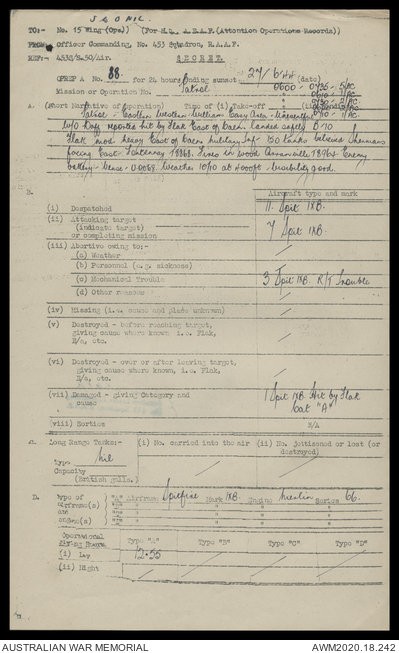 TO:- No. 15 Wing (Ops)) (For H.Q., A.D.G.B. (Attention Operations Records))
FROM:- Officer Commanding, No. 453 Squadron, R.A.A.F.
REF:- 453S/8.50/Air. SECRET.
OPREP A No. 88. for 24 hours ending sunset 27/6/44 (date)
Mission or Operation No. Patrol
A. (Short Narrative of Operation) Time of (i) Take-off
Patrol - Eastern Western William Easy Area - Uneventful
W/O reported hit by flak East of Caen. Landed safely B.10
Flak mod heavy East of Caen. Military Inf - 50 tanks believed Shermans
facing East Fontenay T8868. Fires in wood T8964. Enemy
battery U.0058. Weather 10/10 at 4000ft - visibility good.
B. Aircraft type and mark
(i) Despatched 11 Spit IXB.
(ii) Attacking target
(indicate target)
or completing mission 7 Spit IXB.
(iii) Abortive owing to:-
(a) Weather
(b) Personnel (e.g. sickness)
(c) Mechanical Trouble 3 Spit IXB. R/T Trouble
(d) Other reasons
(iv) Missing (i.e. cause and place unknown)
(v) Destroyed - before reaching target,
giving cause where known i.e. Flak,
E/a, etc.
(vi) Destroyed - over or after leaving target,
giving cause where known, i.e. Flak,
E/a, etc.
(vii) Damaged - giving Category and
cause 1 Spit IXB. Hit by Flak
Cat "A"
(viii) Sorties N/A
C. Long Range Tanks:- (i) No. carried into the air (ii) No. jettisoned or lost (or
destroyed)
type Nil
Capacity
(British galls.)
D. Type of "A" Airframe Spitfire Mark IXB. Engine Merlin Series 66.
airframe(s)
and
engine(s)
Operational
Flying Hours Type "A" Type "B" Type "C" Type "D"
(i) Day 12.55
(ii) Night
AUSTRALIAN WAR MEMORIAL AWM2020.18.242